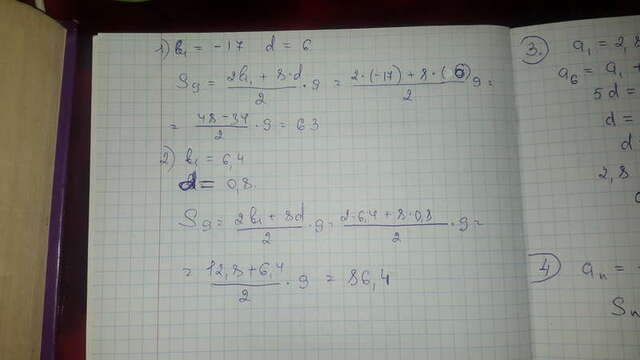 1) b₁ = -17 d = 6
S₉ = (2b₁ + 8·d)/2 · 9 = (2·(-17) + 8·(6))/2 9 =
= (48 - 34)/2 · 9 = 63
2) b₁ = 6,4
d = 0,8
S₉ = (2b₁ + 8d)/2 · 9 = (2·6,4 + 8·0,8)/2 · 9 =
= (12,8 + 6,4)/2 · 9 = 86,4
3. a₁ = 2,8
a₆ = a₁ +
5d =
d =
d
2,8
4) aₙ = -
Sₙ